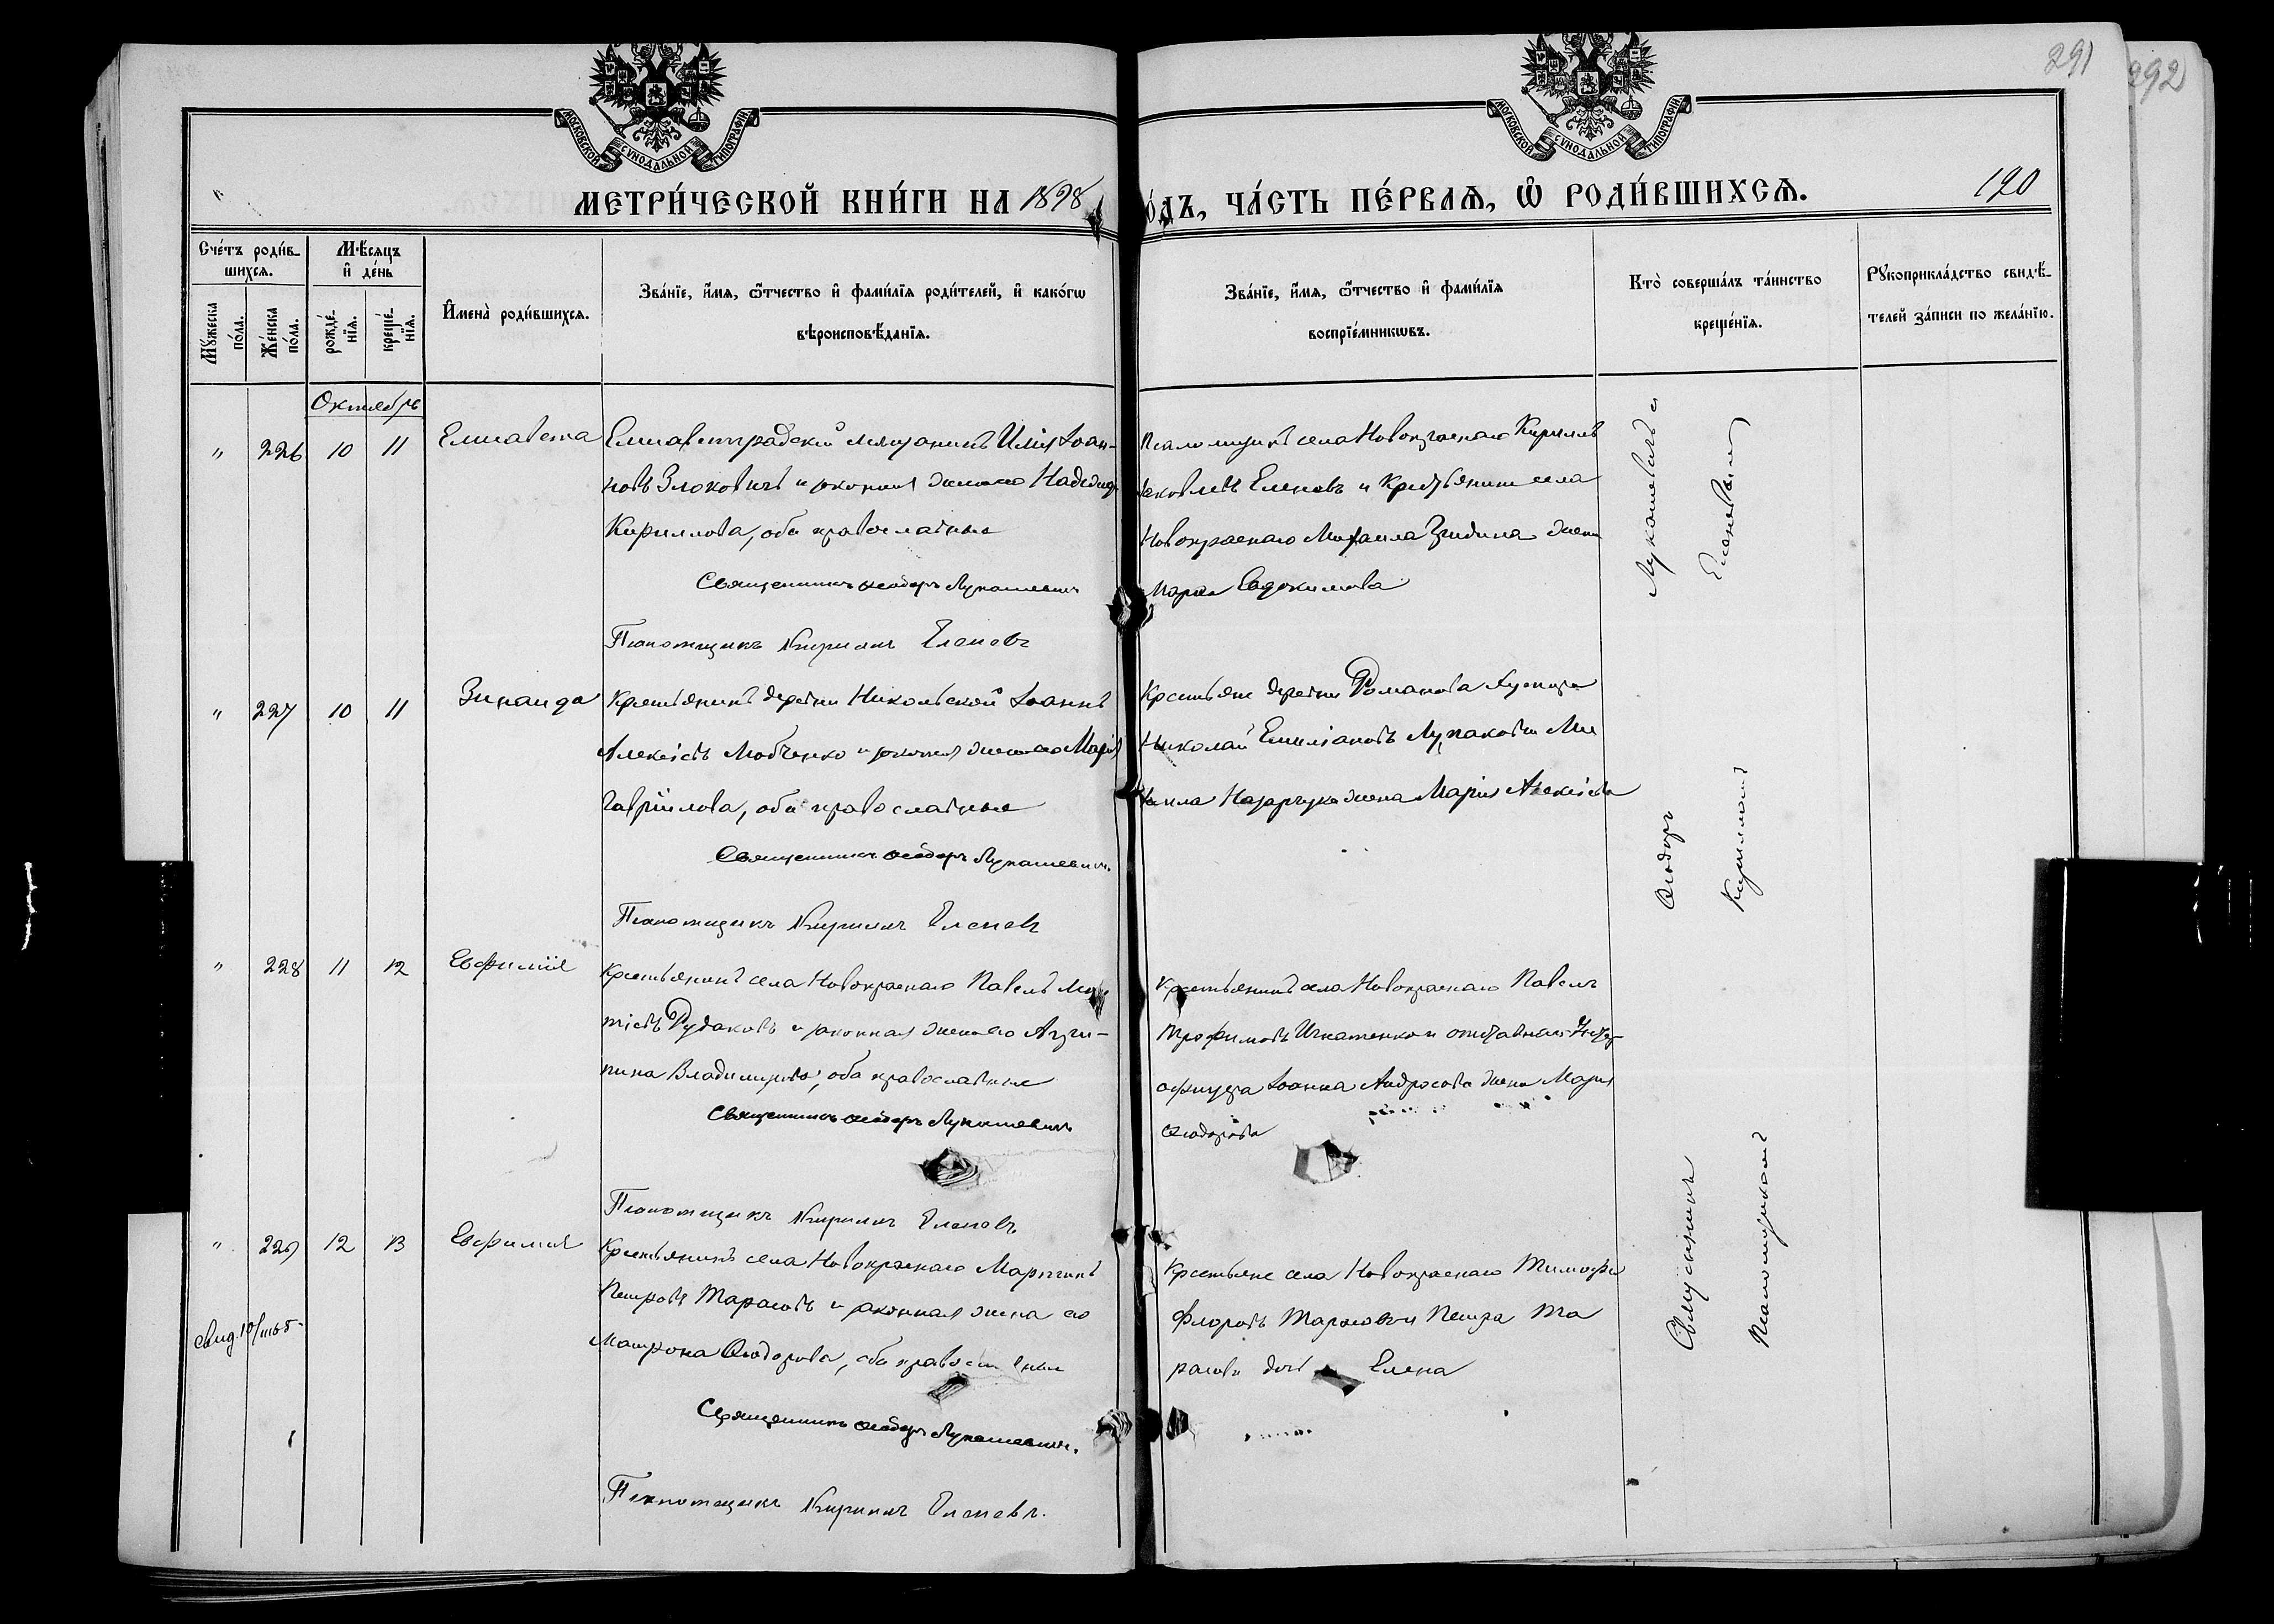 291
292
МОСКОВСКОЙ СѴНОДАЛЬНОЙ ТИПОГРАФІИ
МОСКОВСКОЙ СѴНОДАЛЬНОЙ ТИПОГРАФІИ
МЕТРИ́ЧЕСКОЙ КНИ́ГИ НА 1898
О́ДЪ, ЧА́СТЬ ПЕ́РВАѦ, Ѡ҆ РОДИ́ВШИХСѦ.
190
Сче́тъ роди́в-
шихсѧ.
Мꙋжеска по́ла.
Же́нска по́ла.
Мѣ́сѧцъ
и҆ де́нь
рожде́-
нїѧ.
креще́-
нїѧ.
И҆мена̀ роди́вшихсѧ.
Зва́нїе, и҆́мѧ, ѻ҆́тчество и҆ фами́лїѧ роди́телей, и҆ како́гѡ
вѣроисповѣ́данїѧ.
Зва́нїе, и҆́мѧ, ѻ҆́тчество и҆ фами́лїѧ
воспрїе́мникѡвъ.
Кто̀ соверша́лъ та́инство
креще́нїѧ.
Рꙋкоприкла́дство свидѣ́-
телей за́писи по жела́нїю.
Октябрь
" 226 10 11 Елисавета
Елисаветградскій мѣщанинъ Илія Іоан-
новъ Злоковичъ и законная жена его Надежда
Кириллова, оба православные
Священникъ Ѳеодоръ Лукашевичъ
Псаломщикъ Кириллъ Еленевъ
Псаломщикъ села Новокраснаго Кириллъ
Іаковлевъ Еленевъ и Крестьянина села
Новокраснаго Михаила жена
Марія Евдокимова
" 227 10 11 Зинаида
Крестьянинъ деревни Никольской Іоаннъ
Алексіевъ и законная жена его Марія
Гавріилова, оба православные
Священникъ Ѳеодоръ Лукашевичъ.
Псаломщикъ Кириллъ Еленевъ
Крестьяне деревни Романова Хутора
Николай Емиліановъ и Ми
хаила Назарчука жена Марія Алексіева
" 228 11 12 Евфимія
Крестьянинъ села Новокраснаго Павелъ
Рудаковъ и законная жена его Агри-
пина Владимирова, оба православные
Священникъ Ѳеодоръ Лукашевичъ
Псаломщикъ Кириллъ Еленевъ
Крестьянинъ села Новокраснаго Павелъ
Трофимовъ Игнатенко и отставнаго Унтер-
офицера Іоанна Андросова жена Марія
Ѳеодорова
" 229 12 13 Евфимія
Крестьянинъ села Новокраснаго Мартинъ
Петровъ Тарасовъ и законная жена его
Матрона Ѳеодорова, оба православные
Священникъ Ѳеодоръ Лукашевичъ.
Псаломщикъ Кириллъ Еленевъ.
Крестьяне села Новокраснаго Тимофей
Флоровъ Тарасовъ и Петра Та
расова дочь Елена
Священникъ Ѳеодоръ Лукашевичъ съ
Псаломщикомъ Кирилломъ Еленевымъ